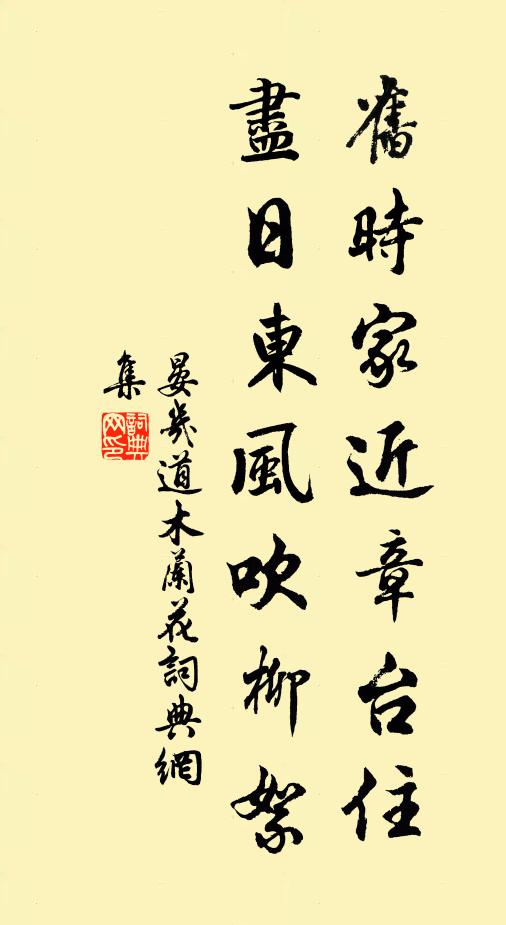 舊時家近章台住
盡日東風吹柳絮
晏幾道木蘭花詞典網
集
詞典網印